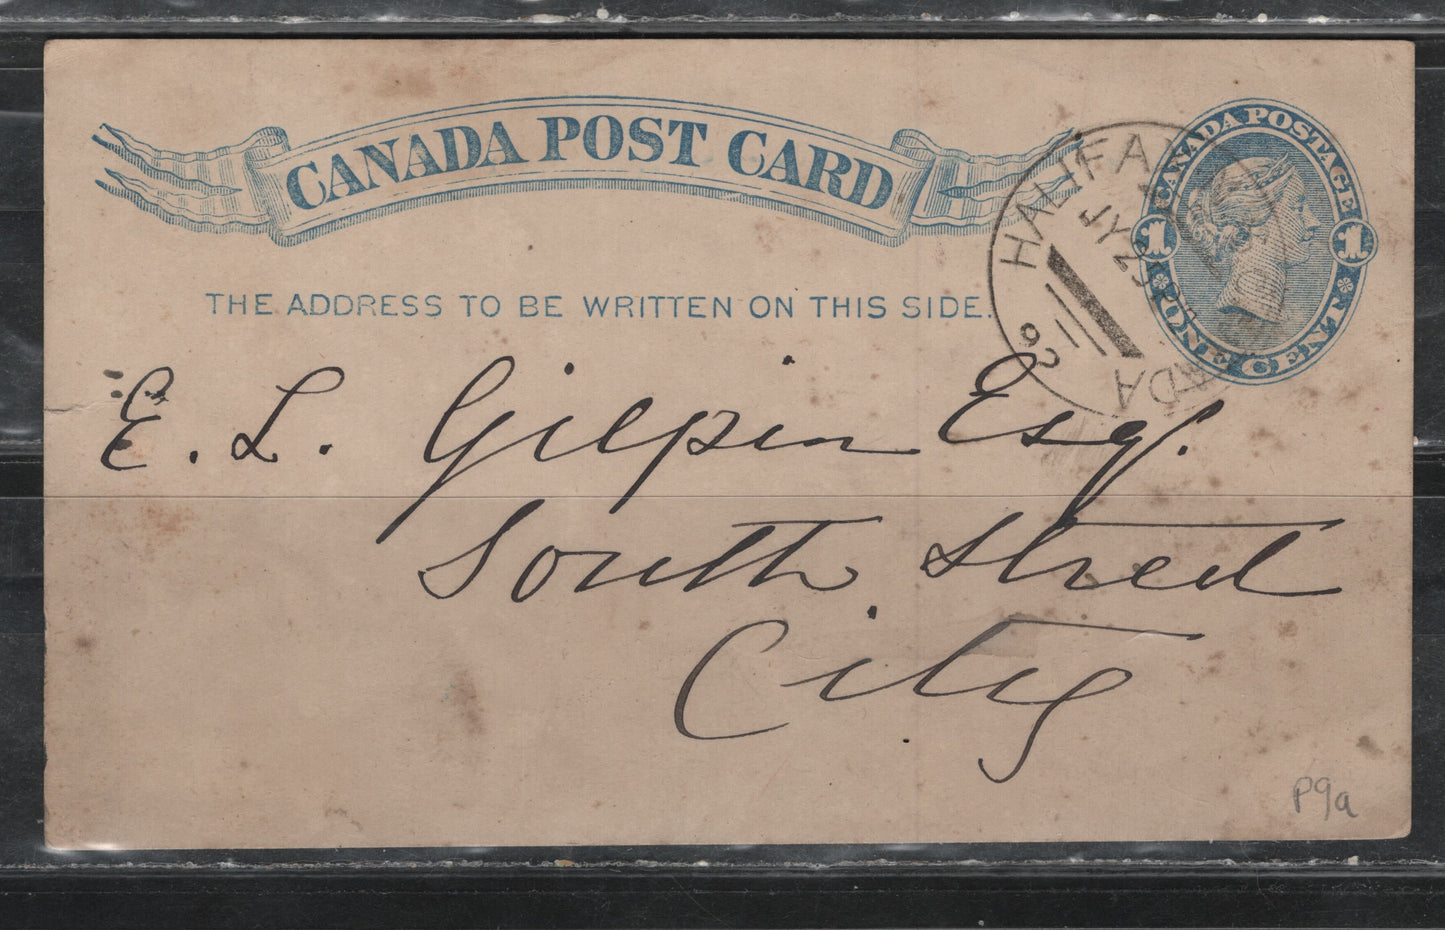 CANADA POST CARD
CANADA POSTAGE
1 1
ONE CENT
THE ADDRESS TO BE WRITTEN ON THIS SIDE.
HALIFA
JY 2
92
ADA
E. L. Gilpin Esq.
South Street
City
P9a